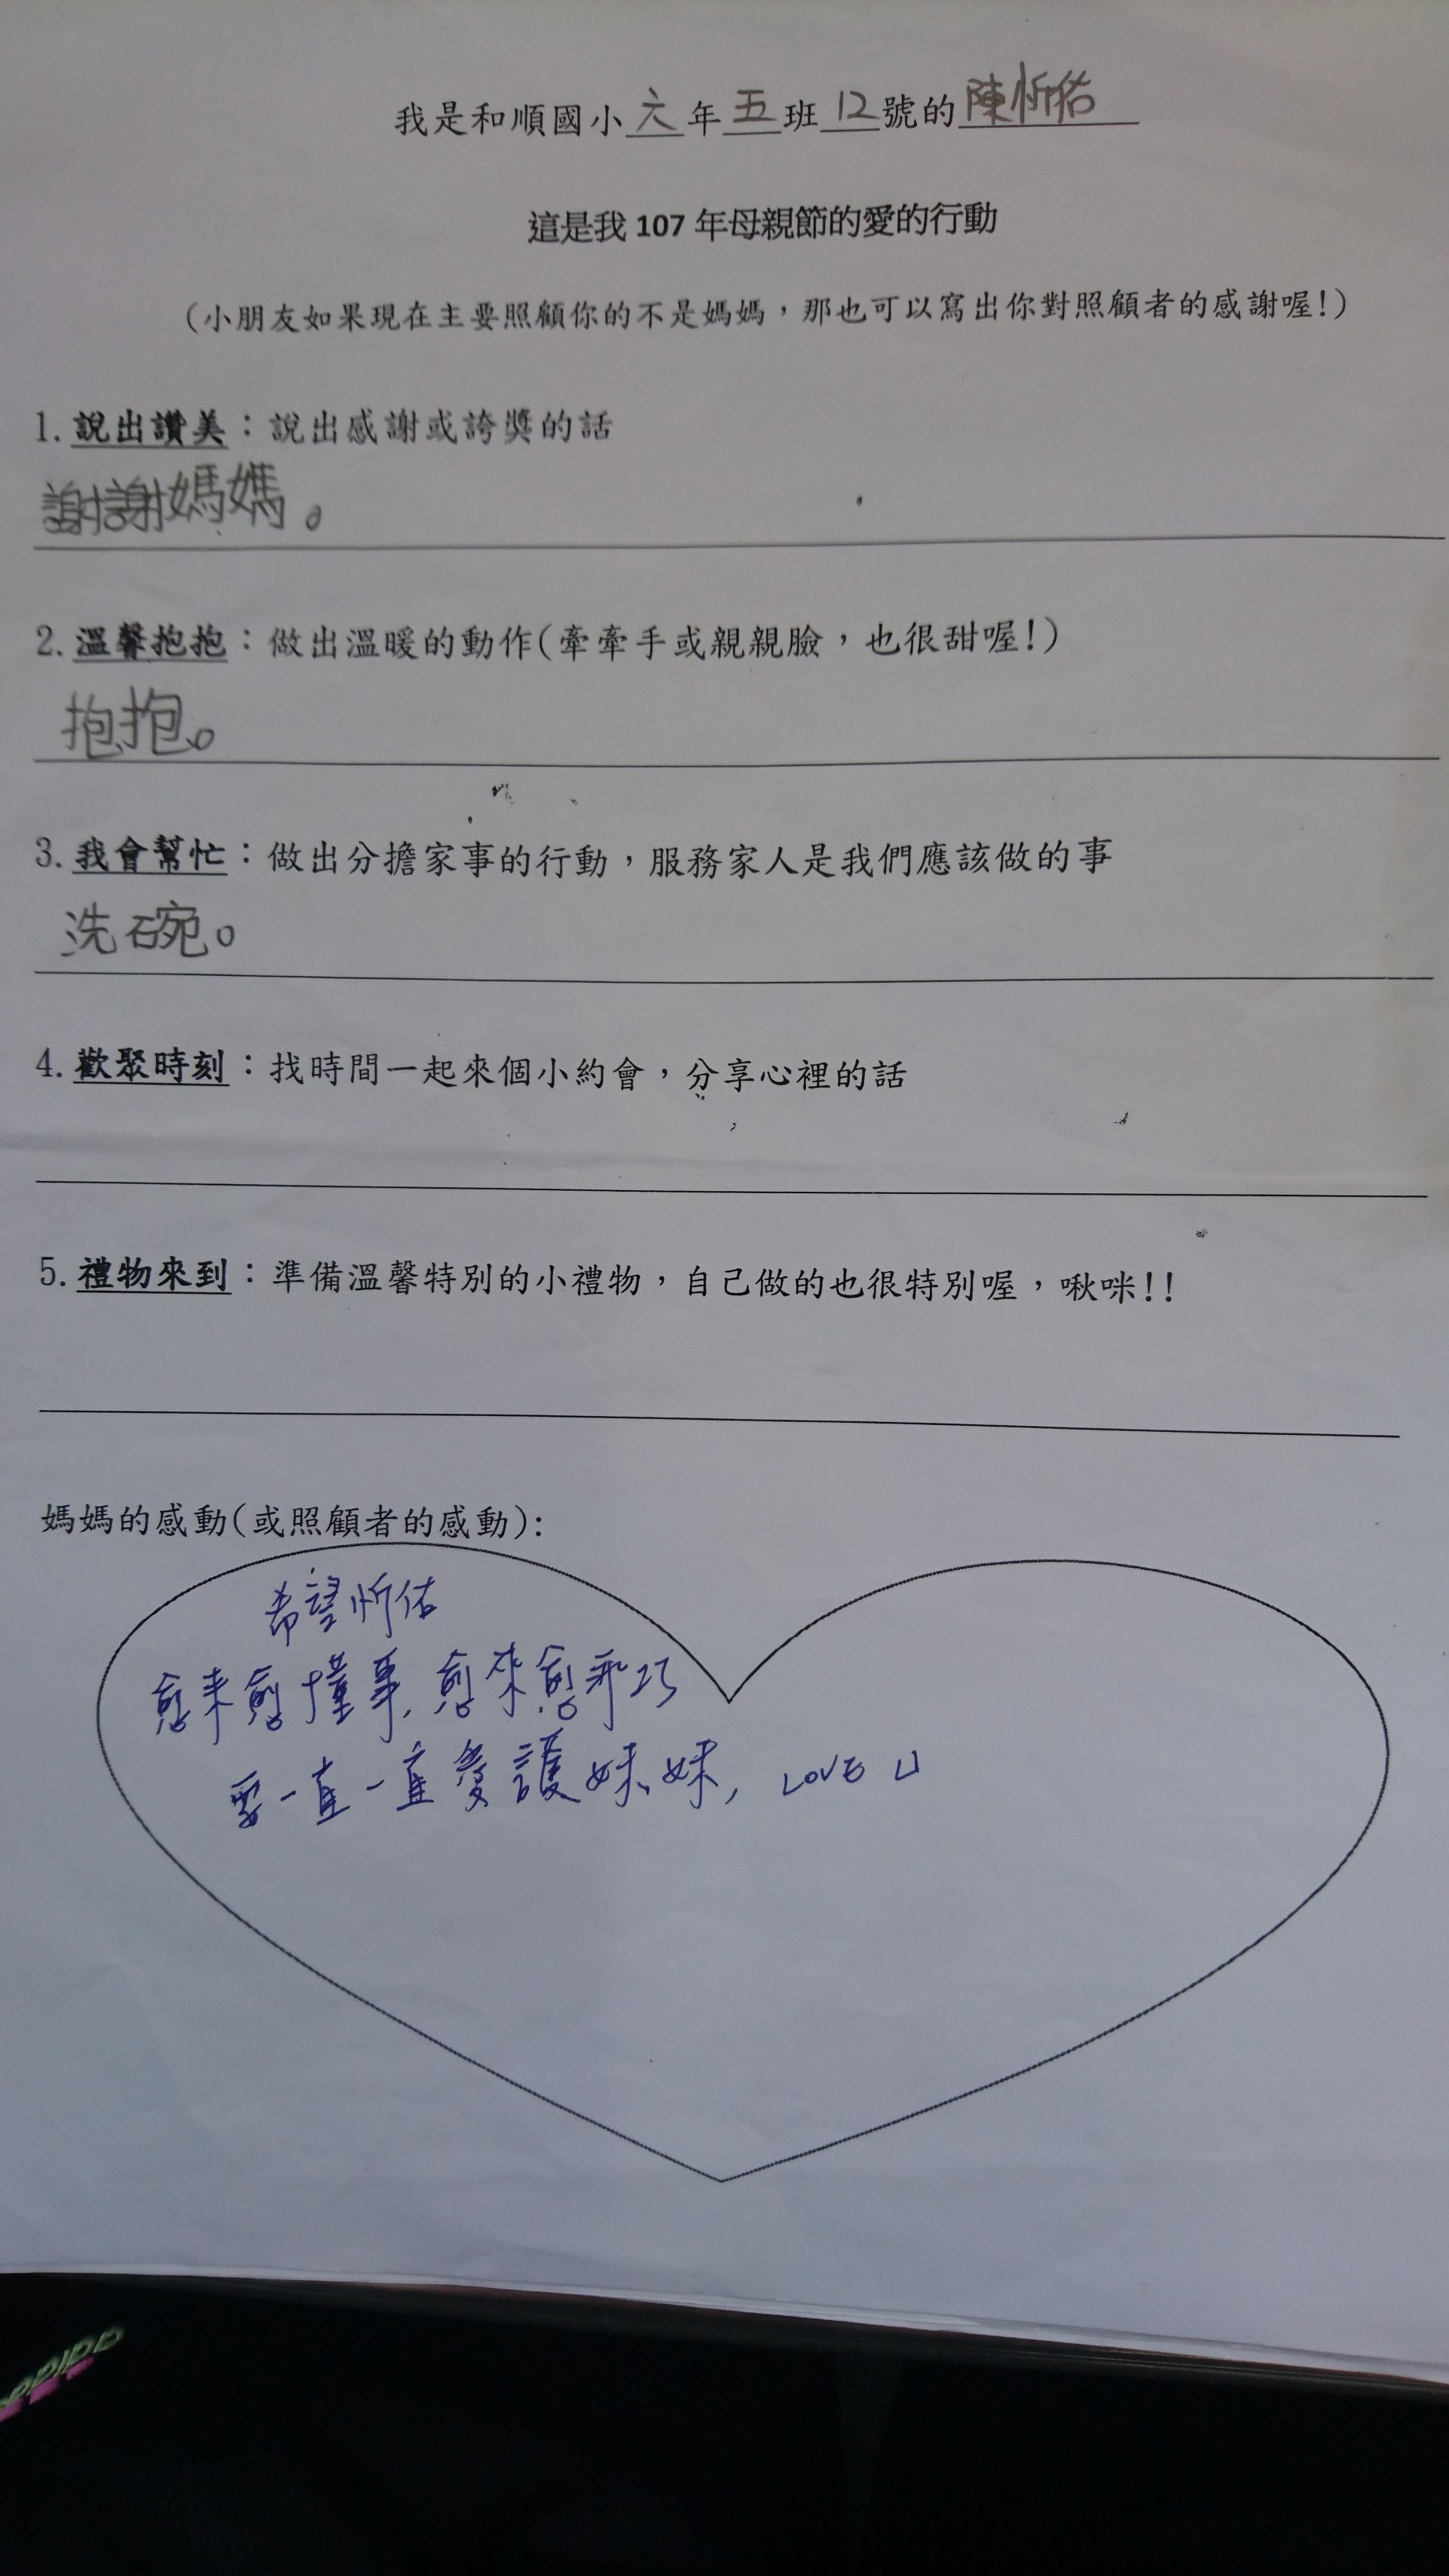 我是和順國小六年五班12號的陳忻佑
這是我107年母親節的愛的行動
(小朋友如果現在主要照顧你的不是媽媽，那也可以寫出你對照顧者的感謝喔!)
1.說出讚美：說出感謝或誇獎的話
謝謝媽媽。
2.溫馨抱抱：做出溫暖的動作(牽牽手或親親臉，也很甜喔!)
抱抱。
3.我會幫忙：做出分擔家事的行動，服務家人是我們應該做的事
洗碗。
4.歡聚時刻：找時間一起來個小約會，分享心裡的話
5.禮物來到：準備溫馨特別的小禮物，自己做的也很特別喔，啾咪!!
媽媽的感動(或照顧者的感動):
希望忻佑
愈来愈懂事,愈來愈乖巧
要一直一直愛護妹妹, LOVE U